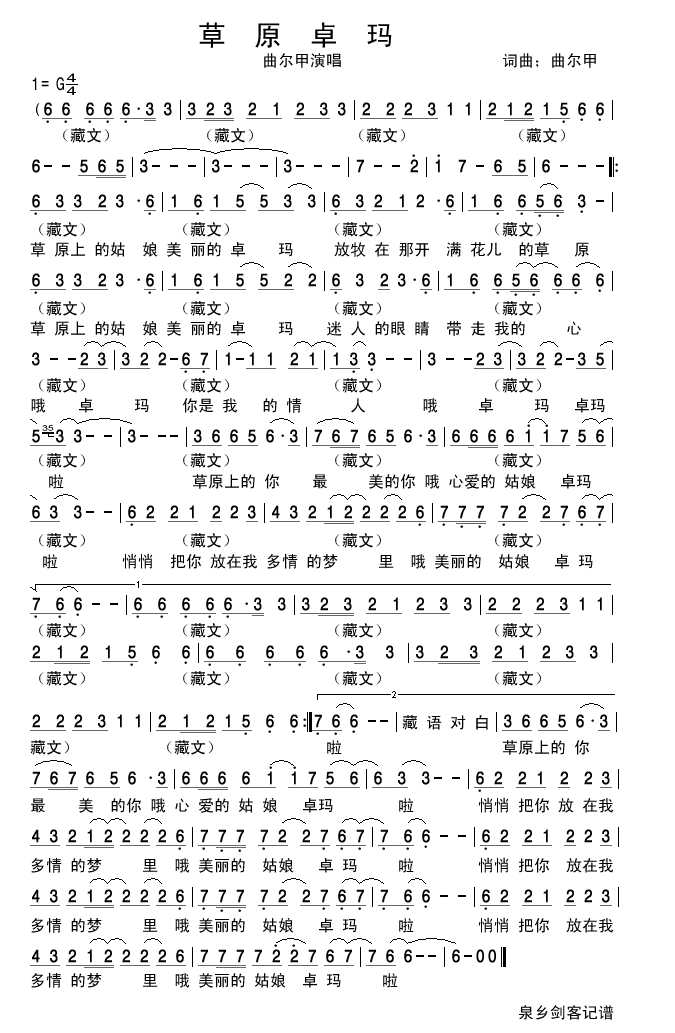 草 原 卓 玛
曲尔甲演唱 词曲：曲尔甲
1= G 4/4
(6 6 6 6 6·3 3 | 3 2 3 2 1 2 3 3 | 2 2 2 3 1 1 | 2 1 2 1 5 6 6 |
（藏文） （藏文） （藏文） （藏文）
6 - - 5 6 5 | 3 - - - | 3 - - - | 3 - - - | 7 - - 2 | 1 7 - 6 5 | 6 - - - ‖:
6 3 3 2 3·6 | 1 6 1 5 5 3 3 | 6 3 2 1 2·6 | 1 6 6 5 6 3 - |
（藏文） （藏文） （藏文） （藏文）
草 原上 的姑 娘 美 丽的 卓 玛 放牧 在 那开 满 花儿 的草 原
6 3 3 2 3·6 | 1 6 1 5 5 2 2 | 6 3 2 3·6 | 1 6 6 5 6 6 6 6 |
（藏文） （藏文） （藏文） （藏文）
草 原上 的姑 娘 美 丽的 卓 玛 迷 人 的眼 睛 带 走 我的 心
3 - - 2 3 | 3 2 2 - 6 7 | 1 - 1 1 2 1 | 1 3 3 - - | 3 - - 2 3 | 3 2 2 - 3 5 |
（藏文） （藏文） （藏文） （藏文）
哦 卓 玛 你是 我 的 情 人 哦 卓 玛 卓玛
5 35 3 3 - - | 3 - - - | 3 6 6 5 6·3 | 7 6 7 6 5 6·3 | 6 6 6 6 1 1 7 5 6 |
（藏文） （藏文） （藏文） （藏文）
啦 草原上的 你 最 美的你 哦 心爱的 姑娘 卓玛
6 3 3 - - | 6 2 2 1 2 2 3 | 4 3 2 1 2 2 2 2 6 | 7 7 7 7 2 2 7 6 7 |
（藏文） （藏文） （藏文） （藏文）
啦 悄悄 把你 放在我 多情 的梦 里 哦 美丽的 姑娘 卓 玛
1
7 6 6 - - | 6 6 6 6 6·3 3 | 3 2 3 2 1 2 3 3 | 2 2 2 3 1 1 |
（藏文） （藏文） （藏文） （藏文）
2 1 2 1 5 6 6 | 6 6 6 6 6·3 3 | 3 2 3 2 1 2 3 3 |
（藏文） （藏文） （藏文） （藏文）
2
2 2 2 3 1 1 | 2 1 2 1 5 6 6 :‖ 7 6 6 - - | 藏 语 对 白 | 3 6 6 5 6·3 |
藏文） （藏文） 啦 草原上的 你
7 6 7 6 5 6·3 | 6 6 6 6 1 1 7 5 6 | 6 3 3 - - | 6 2 2 1 2 2 3 |
最 美 的你 哦 心 爱的 姑 娘 卓玛 啦 悄悄 把你 放 在我
4 3 2 1 2 2 2 2 6 | 7 7 7 7 2 2 7 6 7 | 7 6 6 - - | 6 2 2 1 2 2 3 |
多情 的梦 里 哦 美丽的 姑娘 卓 玛 啦 悄悄 把你 放在我
4 3 2 1 2 2 2 2 6 | 7 7 7 7 2 2 7 6 7 | 7 6 6 - - | 6 2 2 1 2 2 3 |
多情 的梦 里 哦 美丽的 姑娘 卓 玛 啦 悄悄 把你 放在我
4 3 2 1 2 2 2 2 6 | 7 7 7 7 2 2 7 6 7 | 7 6 6 - - | 6 - 0 0 ‖
多情 的梦 里 哦 美丽的 姑娘 卓 玛 啦
泉乡剑客记谱